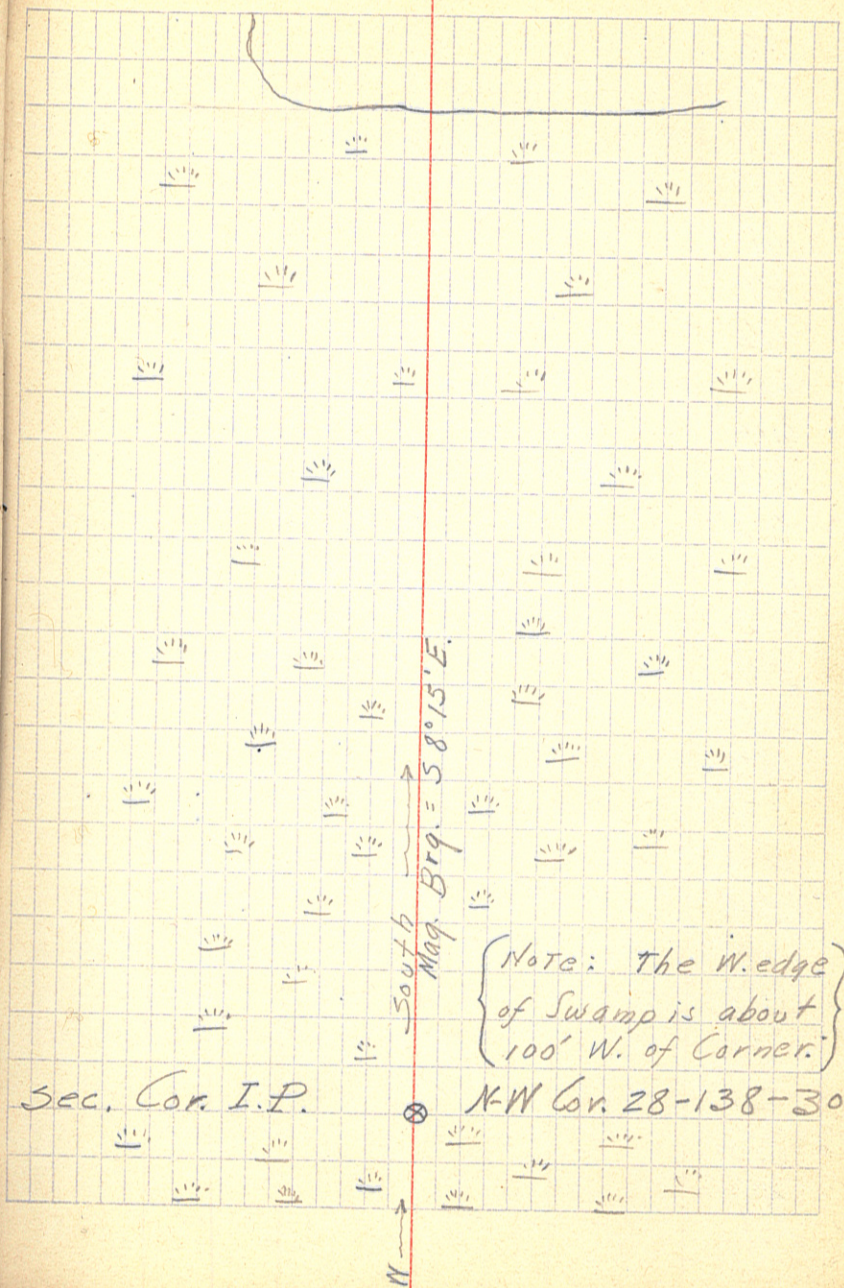 South
Mag. Brg. = S 8° 15' E.
Note: The W. edge
of Swamp is about
100' W. of Corner.
Sec. Cor. I.P.
N-W Cor. 28-138-30
N